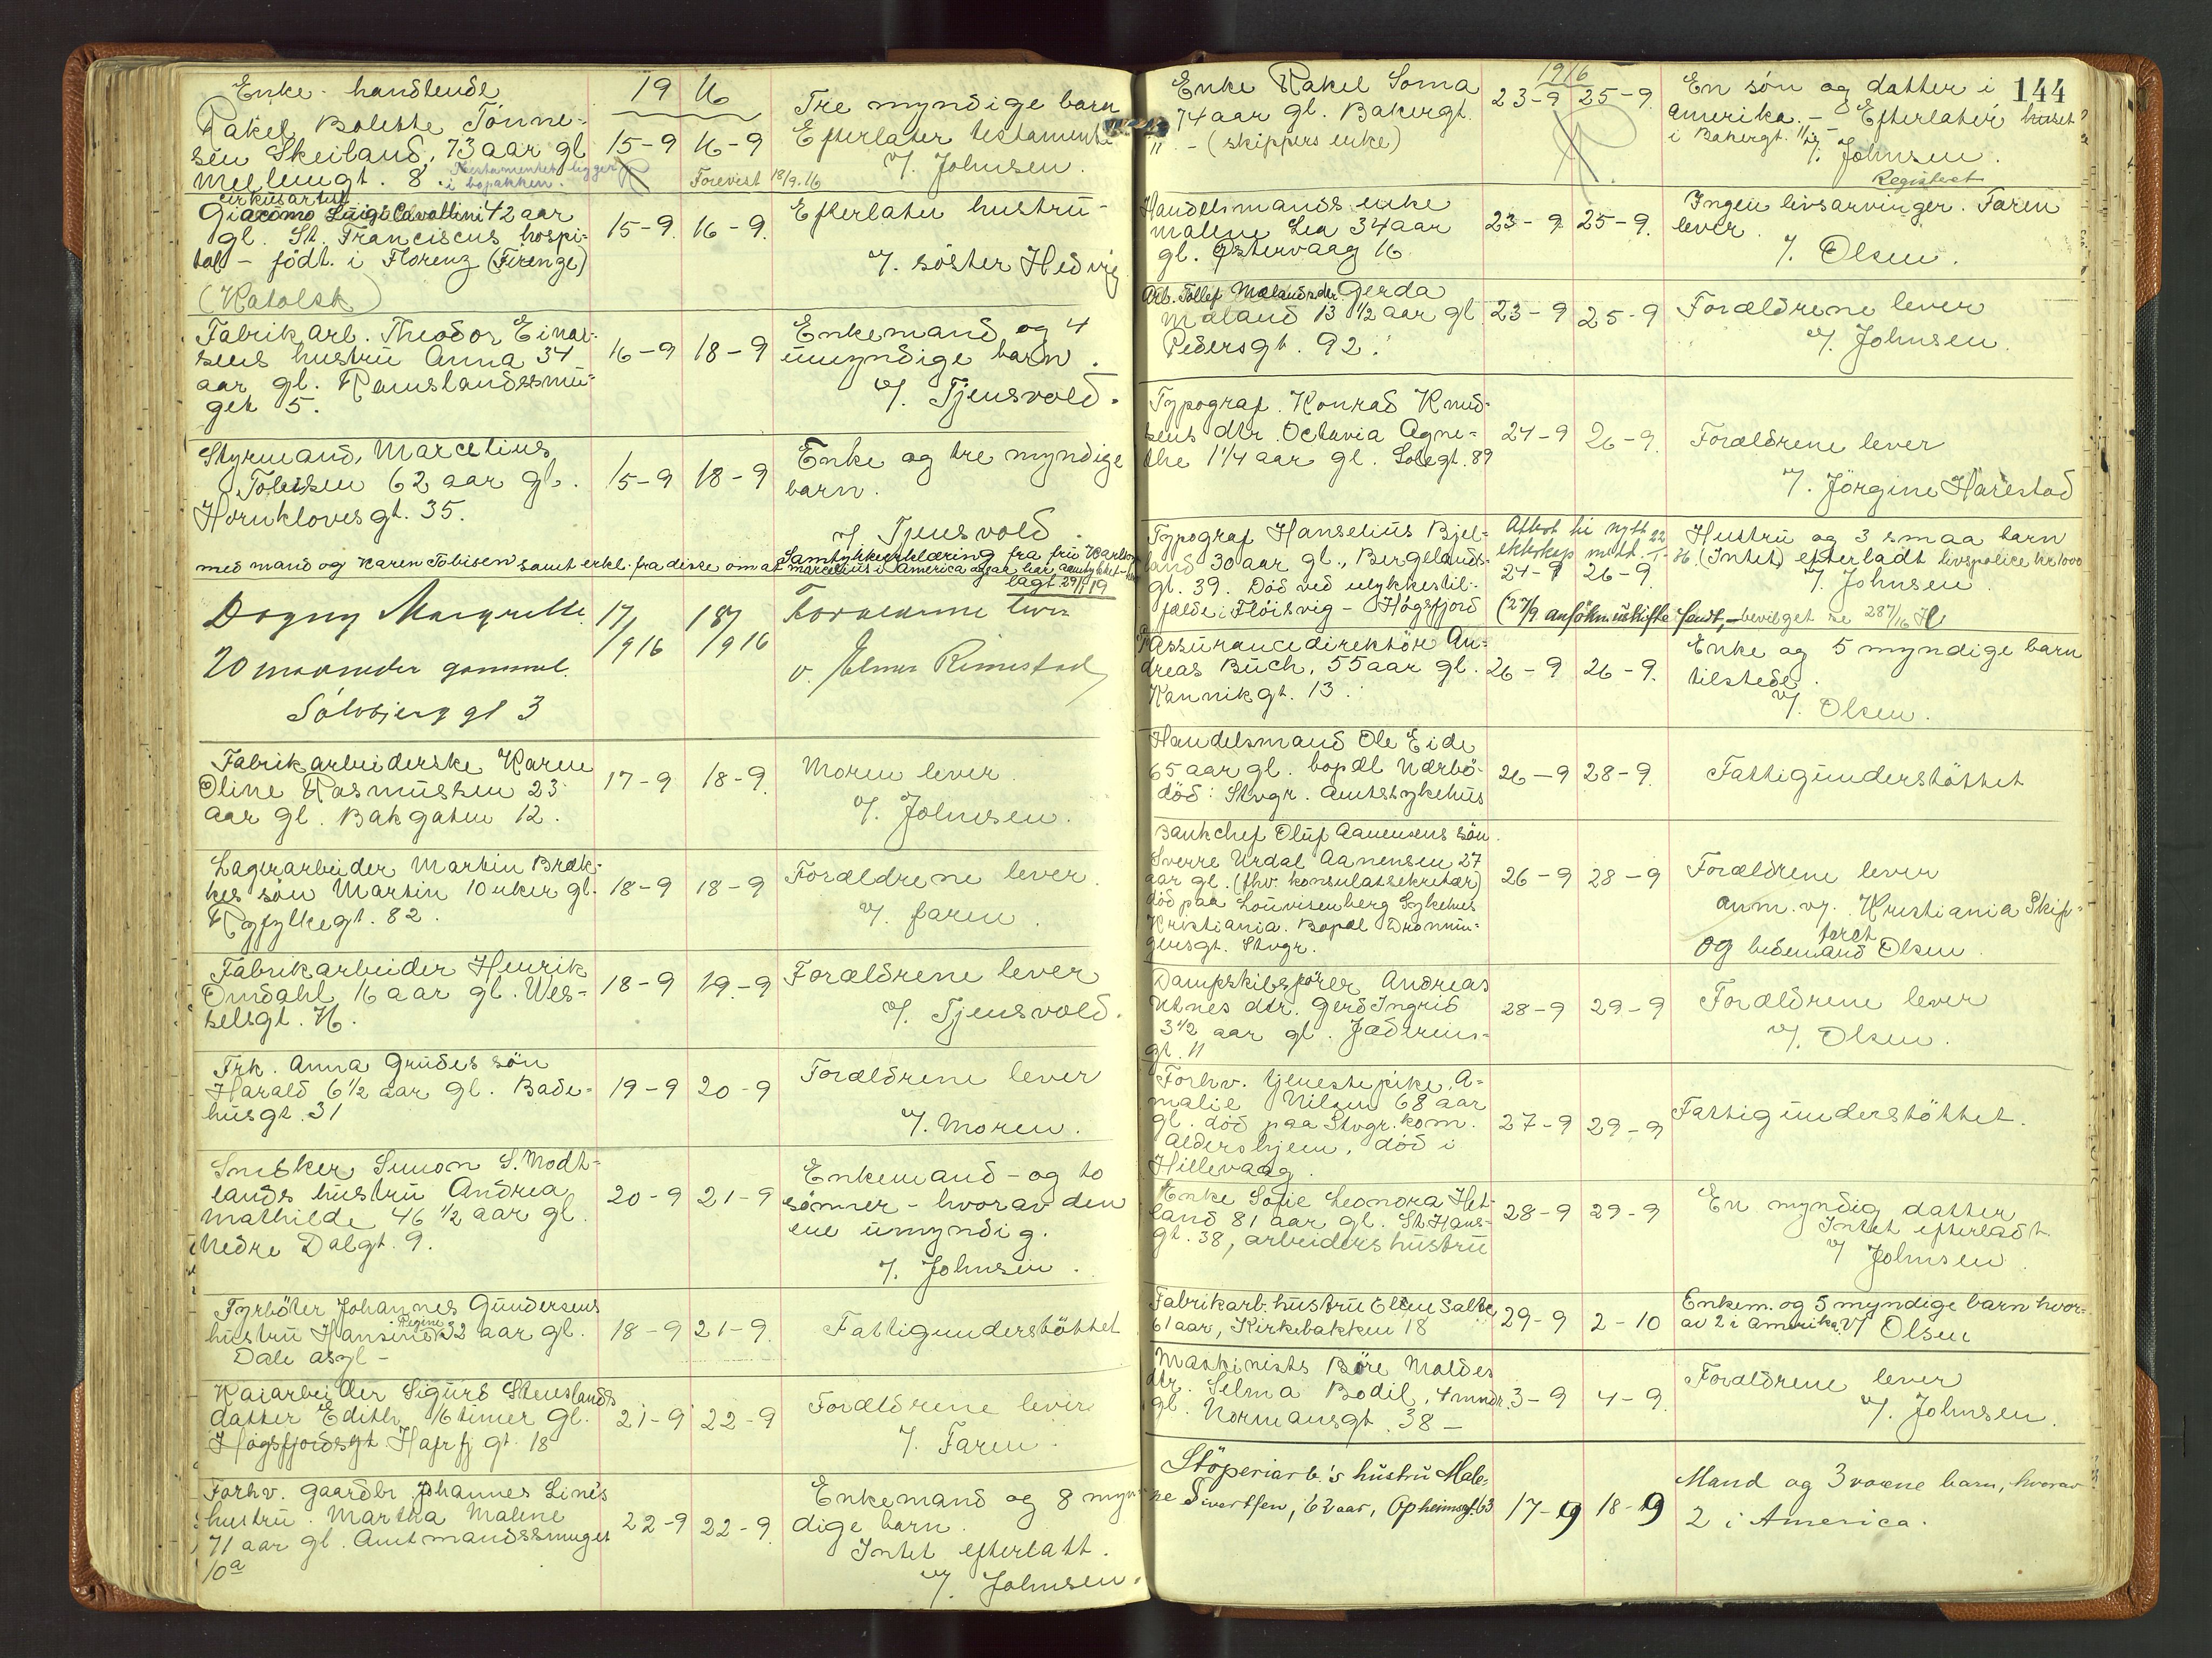 Enke - handlende
Rakel Bolette Tönne-
sen Skeiland, 73 aar gl
Mellemgt. 8. Testamentet ligger
i bopakken.
1916
15-9 16-9
Forevist 18/9.16
Tre myndige barn
Efterlater testamente
v/. Johnsen.
cirkusartist
Giacomo Luigi Cavallini 42 aar
gl. St. Franciscus hospi-
tal - født i Florenz (Firenze)
(Katolsk)
15-9. 16-9.
Efterlater hustru -
v/. söster Hedvig
Fabrikarb. Theodor Einar-
sens hustru Anna 34
aar gl. Ramslandssmu-
get 5.
16-9 18-9
Enkemand og 4
umyndige barn.
v/. Tjensvold.
Styrmand, Marcelius
Tobisen 62 aar gl.
Hornklovesgt. 35.
15-9 18-9
Enke og tre myndige
barn.
v/ Tjensvold.
Samtykkeerklæring fra fru Karlson
med mand og Karen Tobisen samt erkl. fra disse om at Marcelius i America ogsaa har samtykket
lagt 29/11 19
Dagny Margrethe
20 maaneder gammel.
Sølvbjerggt 3
17/9 16 18/9 16
Forældrene lever
v. Elmer Rimestad
Fabrikarbeiderske Karen
Oline Rasmussen 23
aar gl. Bakgaten 12.
17-9 18-9.
Moren lever.
v/. Johnsen.
Lagerarbeider Martin Bræk-
kes sön Martin 10 uker gl.
Ryfylkegt. 82.
18-9 18-9
Forældrene lever.
v/. faren.
Fabrikarbeider Henrik
Omdahl 16 aar gl. Wes-
selsgt. 16.
18-9 19-9
Forældrene lever
v/. Tjensvold.
Frk. Anna Grudes sön
Harald 6 1/2 aar gl. Bade-
husgt. 31
19-9 20-9
Forældrene lever
v/. Moren.
Snekker Simon S. Modt-
lands hustru Andrea
Mathilde 46 1/2 aar gl.
Nedre Dalgt. 9.
20-9 21-9
Enkemand - og to
sönner - hvorav den
ene umyndig.
v/. Johnsen.
Fyrböter Johannes Gundersens
hustru Hansine Regine 32 aar gl.
Dale asyl -
18-9 21-9.
Fattigunderstöttet
Kaiarbeider Sigurd Stenslands
datter Edith 16 timer gl.
Högsfjordsgt Hafrfj gt. 18
21-9 22-9
Forældrene lever
v/. Faren.
Forhv. gaardbr Johannes Lines
hustru. Martha Malene
71 aar gl. Amtmandssmuget
10a
22-9 22-9.
Enkemand og 8 myn-
dige barn.
Intet efterlatt.
v/. Johnsen.
144
Enke Rakel Soma
74 aar gl. Bakergt.
11 - (skippers enke)
1916
23-9 25-9.
En sön og datter i
Amerika. - Efterlater huset
i Bakergt. 11,
v/. Johnsen.
Registert
Handelsmands enke
Malene Lea 34 aar
gl. Østervaag 16
23-9 25-9.
Ingen livsarvinger. Faren
lever.
v/. Olsen.
Arb. Tollef Mælands dtr. Gerda
Mæland 13 1/2 aar gl.
Pedersgt. 92.
23-9 25-9
Forældrene lever
v/. Johnsen.
Typograf. Konrad Knud-
sens dtr. Octavia Agne-
the 1 1/4 aar gl. Solegt. 89
24-9 26-9.
Forældrene lever
v/. Jörgine Harestad
Typograf Hanselius Bjel-
land 30 aar gl., Bergelands-
gt. 39. Död ved ulykkestil-
fælde i Flöisvig - Högsfjord
Attest til nytt
ekteskap
24-9 26-9.
Hustru og 3 smaa barn
(Intet) efterladt livspolice kr 1000
v/. Johnsen
(27/9 ansökn. uskifte sendt, - bevilget
Assurancedirektör An-
dreas Buch, 55 aar gl.
Kannikgt. 13.
26-9 26-9.
Enke og 5 myndige barn
tilstede.
v/. Olsen.
Handelsmand Ole Eide
65 aar gl. bopæl Nærbö -
död: Stvgr. Amtssykehus
26-9 28-9.
Fattigunderstöttet
Bankchef Oluf Aanensens sön.
Sverre Urdal Aanensen 27
aar gl. (fhv. konsulatsekretær)
död paa Louvisenberg Sykehus
Kristiania. Bopæl Dronnin-
gensgt. Stvgr.
26-9 28-9
Forældrene lever
anm. v/. Kristiania Skif-
teret
og bedemand Olsen.
Dampskibsförer Andreas
Utnes dtr. Gerd Ingrid
3 1/2 aar gl. Jæderens-
gt. 11
28-9 29-9
Forældrene lever
v/. Olsen.
Forhv. tjenestepike A-
malie Nilsen 68 aar
gl. död paa Stvgr. kom.
Aldershjem, död i
Hillevaag.
27-9 29-9
Fattigunderstöttet.
Enke Sofie Leonora Het-
land 81 aar gl. St. Hans-
gt. 38, arbeiders hustru
28-9 29-9
En myndig datter
Intet efterladt.
v/ Johnsen.
Fabrikarb. hustru Ellen Salte
61 aar, Kirkebakken 18
29-9 2-10
Enkem. og 5 myndige barn hvor-
av 2 i Amerika. v/ Olsen
Maskinists Böre Moldes
dtr. Selma Bodil, 4 mndr.
gl. Normansgt. 38 -
3-9 4-9.
Forældrene lever
v/. Johnsen.
Stöperiarb.'s hustru Male-
ne Sivertsen, 62 aar, Opheimsgt. 63
17-9 18-9
Mand og 3 voxne barn, hvorav
2 i America.